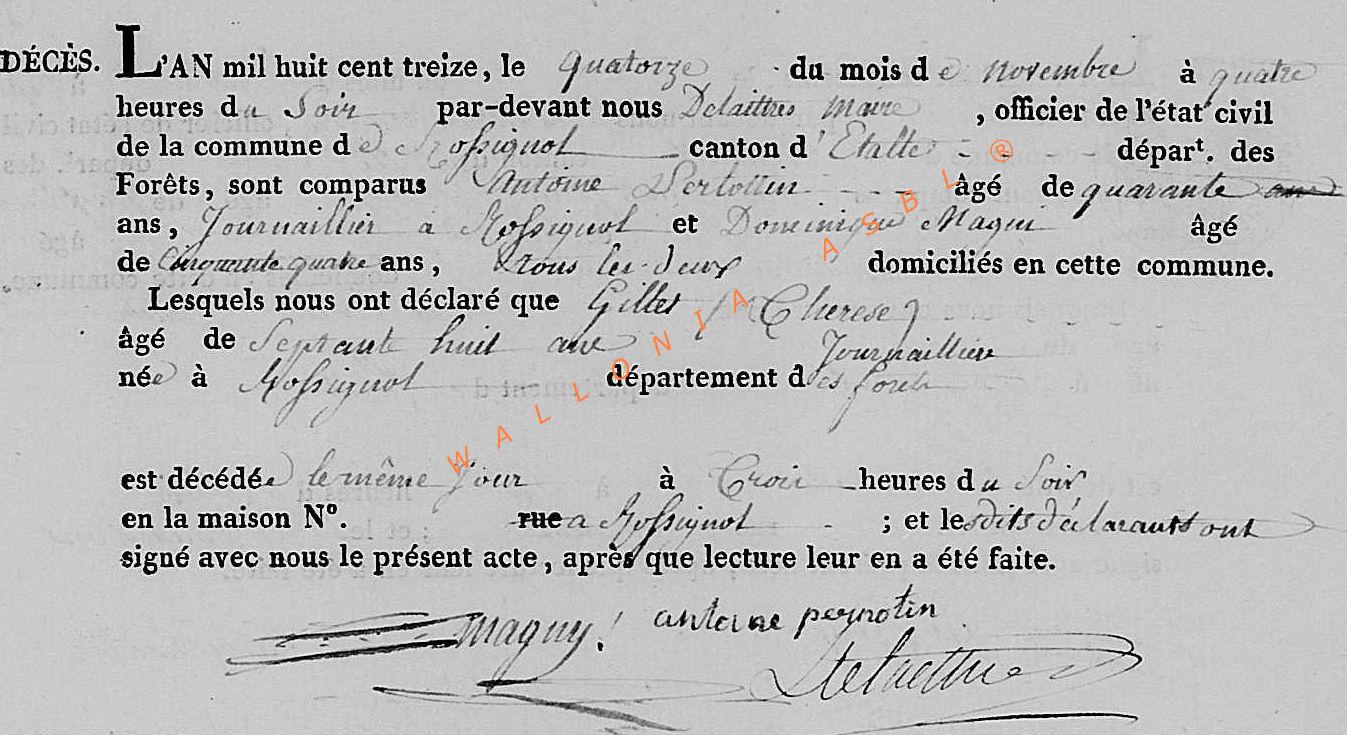 DÉCÈS. L'AN mil huit cent treize, le quatorze du mois de novembre à quatre
heures du Soir par-devant nous Delaittres Maire, officier de l'état civil
de la commune de Rossignol canton d'Etalle départ. des
Forêts, sont comparus Antoine âgé de quarante
ans, Journaillier a Rossignol et Dominique Magni âgé
de Cinquante quatre ans, tous les deux domiciliés en cette commune.
Lesquels nous ont déclaré que Gilles Therese
âgé de Septante huit ans Journaillière
née à Rossignol département des forets
est décédée le même jour à Trois heures du Soir
en la maison N°. rue a Rossignol ; et lesdits déclarants ont
signé avec nous le présent acte, après que lecture leur en a été faite.
magny! antoine peyrotin
Delaittre
WALLONIA ASBL ®